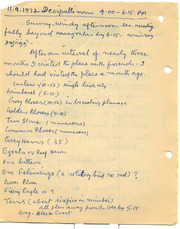 11.9.1972 Devipattinam 4.00-6.15 PM
Sunny, windy afternoon. Sea nearly
fully beyond by 6.15.
After an interval of nearly three
months I visited the place with friends. I
should had visited the place a month ago.
Curlew (8-10) single birds only
Whimbrel (5-10)
Grey Plover in breeding plumage
Golden Plovers (5-8)
Turn Stone (numerous)
Common Plover (numerous)
Grey Herons (35)
Egrets or Reef Heron
One bittern
One (a solitary bird so sad) ?
River Tern
Fishing Eagle ?
Terns (about sixties in number)
All flew away from the sea by 5.15
Grey-black